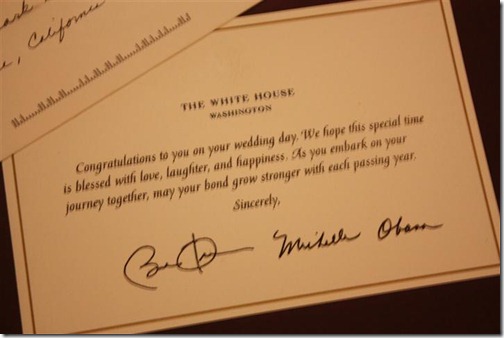 ark
e, California
THE WHITE HOUSE
WASHINGTON
Congratulations to you on your wedding day. We hope this special time
is blessed with love, laughter, and happiness. As you embark on your
journey together, may your bond grow stronger with each passing year.
Sincerely,
Michelle Obama